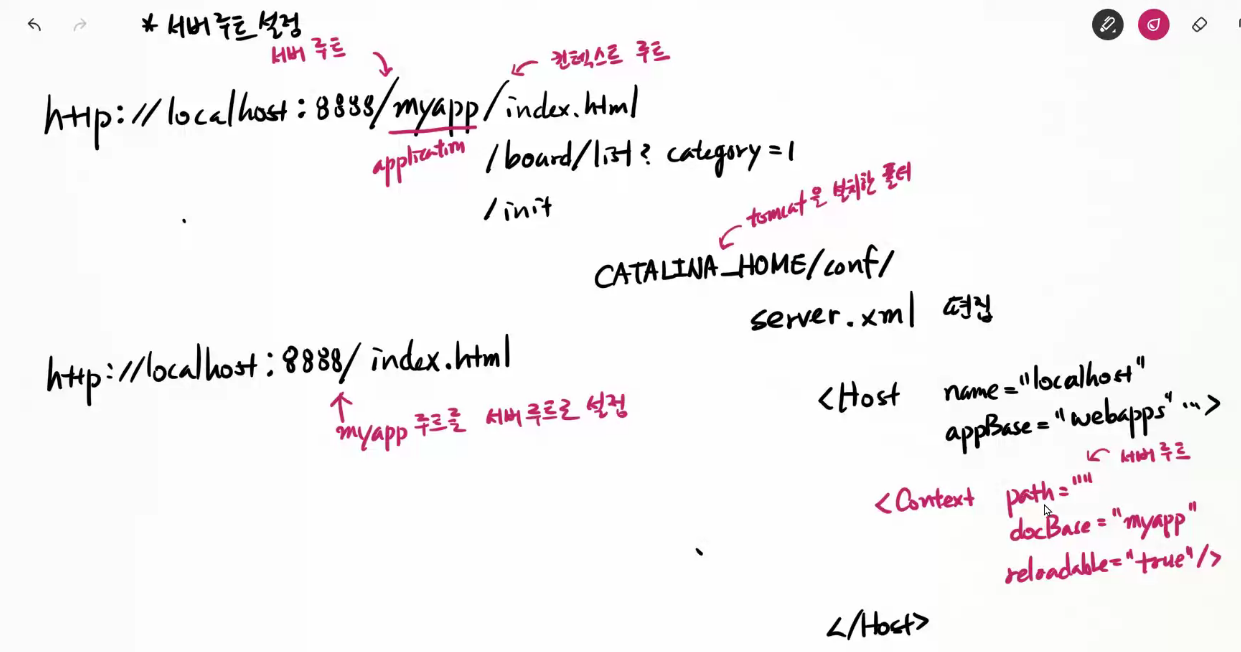 * 서버 루트 설정
서버 루트
컨텍스트 루트
http://localhost:8888/myapp/index.html
application
/board/list? category=1
/init
tomcat을 설치한 폴더
CATALINA_HOME/conf/
server.xml 편집
http://localhost:8888/index.html
myapp 루트를 서버 루트로 설정
<Host name="localhost"
appBase="webapps" ...>
서버 루트
<Context path=""
docBase="myapp"
reloadable="true"/>
</Host>